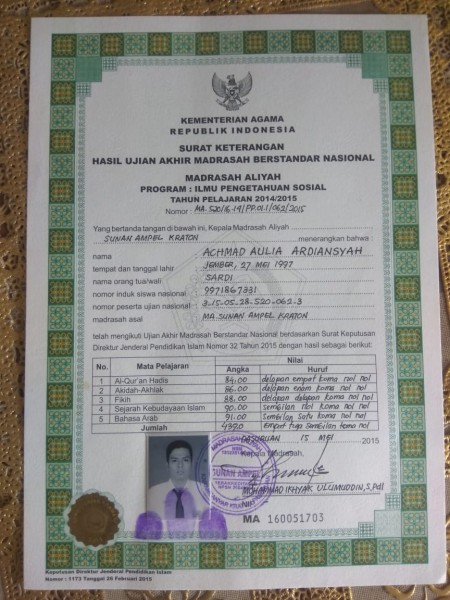 KEMENTERIAN AGAMA
REPUBLIK INDONESIA
SURAT KETERANGAN
HASIL UJIAN AKHIR MADRASAH BERSTANDAR NASIONAL
MADRASAH ALIYAH
PROGRAM : ILMU PENGETAHUAN SOSIAL
TAHUN PELAJARAN 2014/2015
Nomor : MA.520/16.19/PP.01.1/062/2015
Yang bertanda tangan di bawah ini, Kepala Madrasah Aliyah
SUNAN AMPEL KRATON menerangkan bahwa :
nama ACHMAD AULIA ARDIANSYAH
tempat dan tanggal lahir JEMBER, 27 MEI 1997
nama orang tua/wali SARDI
nomor induk siswa nasional 9971867331
nomor peserta ujian nasional 3-15-05-28-520-062-3
madrasah asal MA SUNAN AMPEL KRATON
telah mengikuti Ujian Akhir Madrasah Berstandar Nasional berdasarkan Surat Keputusan
Direktur Jenderal Pendidikan Islam Nomor 32 Tahun 2015 dengan hasil sebagai berikut:
No. Mata Pelajaran Nilai
Angka Huruf
1 Al-Qur'an Hadis 84.00 delapan empat koma nol nol
2 Akidah-Akhlak 86.00 delapan enam koma nol nol
3 Fikih 88.00 delapan delapan koma nol nol
4 Sejarah Kebudayaan Islam 90.00 sembilan nol koma nol nol
5 Bahasa Arab 91.00 sembilan satu koma nol nol
Jumlah empat tiga sembilan koma nol
PASURUAN 15 MEI 2015
Kepala Madrasah,
SUNAN AMPEL
MOHAMMAD IKHYAK ULUMUDDIN, S.PdI
MA 160051703
Keputusan Direktur Jenderal Pendidikan Islam
Nomor : 1173 Tanggal 25 Februari 2015